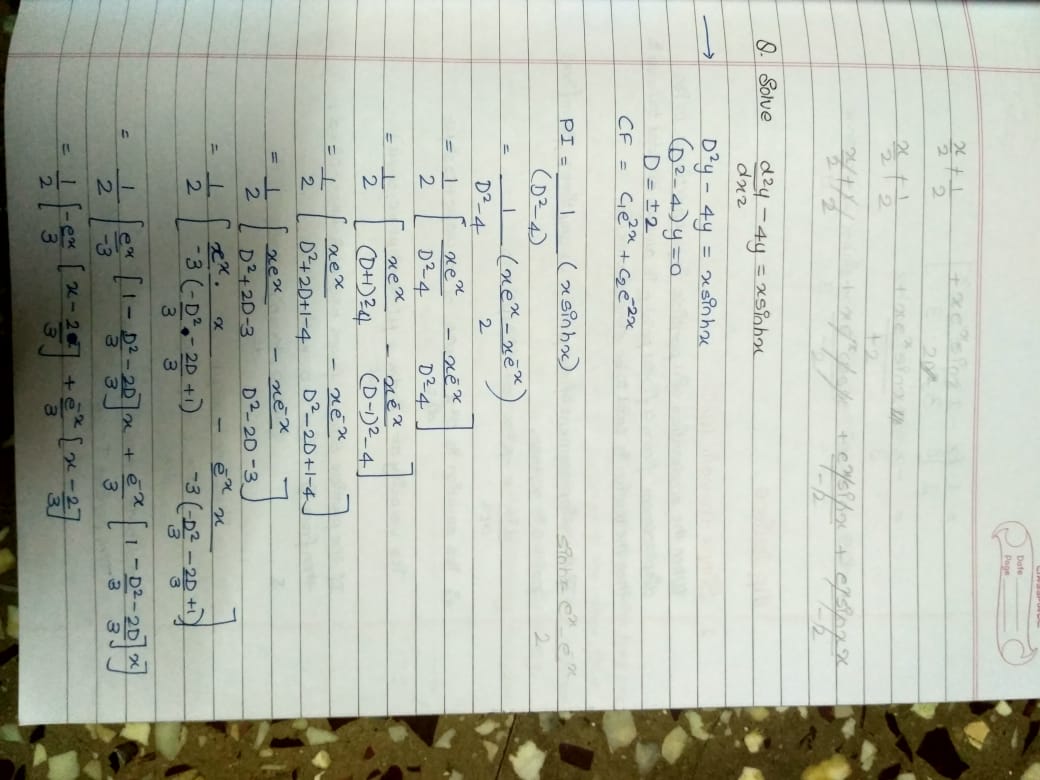 Date
Page
x/2 + 1/2
x/2 + 1/2
Q. Solve d²y/dx² - 4y = x sinhx
→ D²y - 4y = x sinhx
(D² - 4) y = 0
D = ±2
CF = c₁e^2x + c₂e^-2x
PI = 1/(D²-4) (x sinhx)
sinhx = e^x - e^-x / 2
= 1/(D²-4) (xe^x - xe^-x / 2)
= 1/2 [ xe^x/(D²-4) - xe^-x/(D²-4) ]
= 1/2 [ xe^x/((D+1)²-4) - xe^-x/((D-1)²-4) ]
= 1/2 [ xe^x/(D²+2D+1-4) - xe^-x/(D²-2D+1-4) ]
= 1/2 [ xe^x/(D²+2D-3) - xe^-x/(D²-2D-3) ]
= 1/2 [ e^x · x/(-3(-D²/3 - 2D/3 + 1)) - e^-x x/(-3(-D²/3 - 2D/3 + 1)) ]
= 1/2 [ e^x/-3 [ 1 - D²/3 - 2D/3 ] x + e^-x/3 [ 1 - D²/3 - 2D/3 ] x ]
= 1/2 [ -e^x/3 [ x - 2/3 ] + e^-x/3 [ x - 2/3 ]